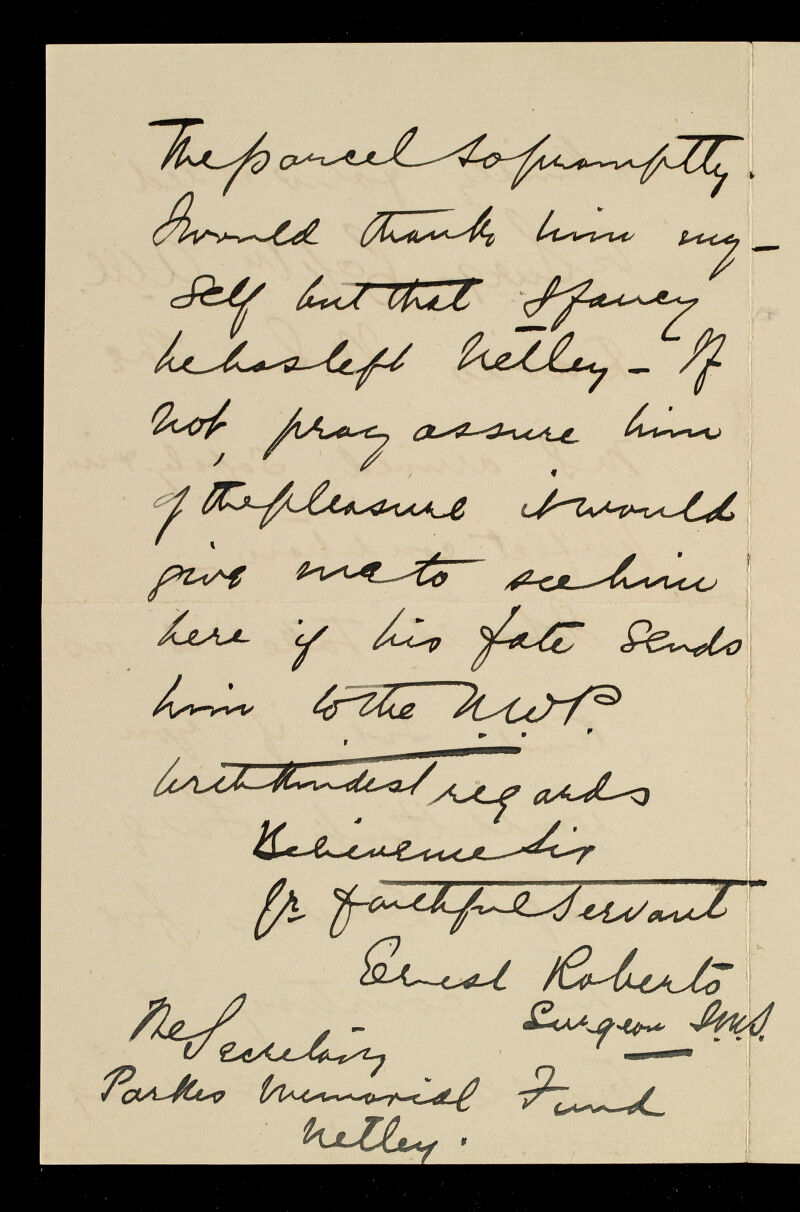 the parcel so promptly.
I would thank him my-
self but that I fancy
he has left Netley - If
not, pray assure him
of the pleasure it would
give me to see him
here if his fate sends
him to the N.W.P.
With kindest regards
Believe me Sir
Yr faithful servant
Ernest Roberts
Surgeon I.M.S.
The Secretary
Parkes Memorial Fund
Netley.